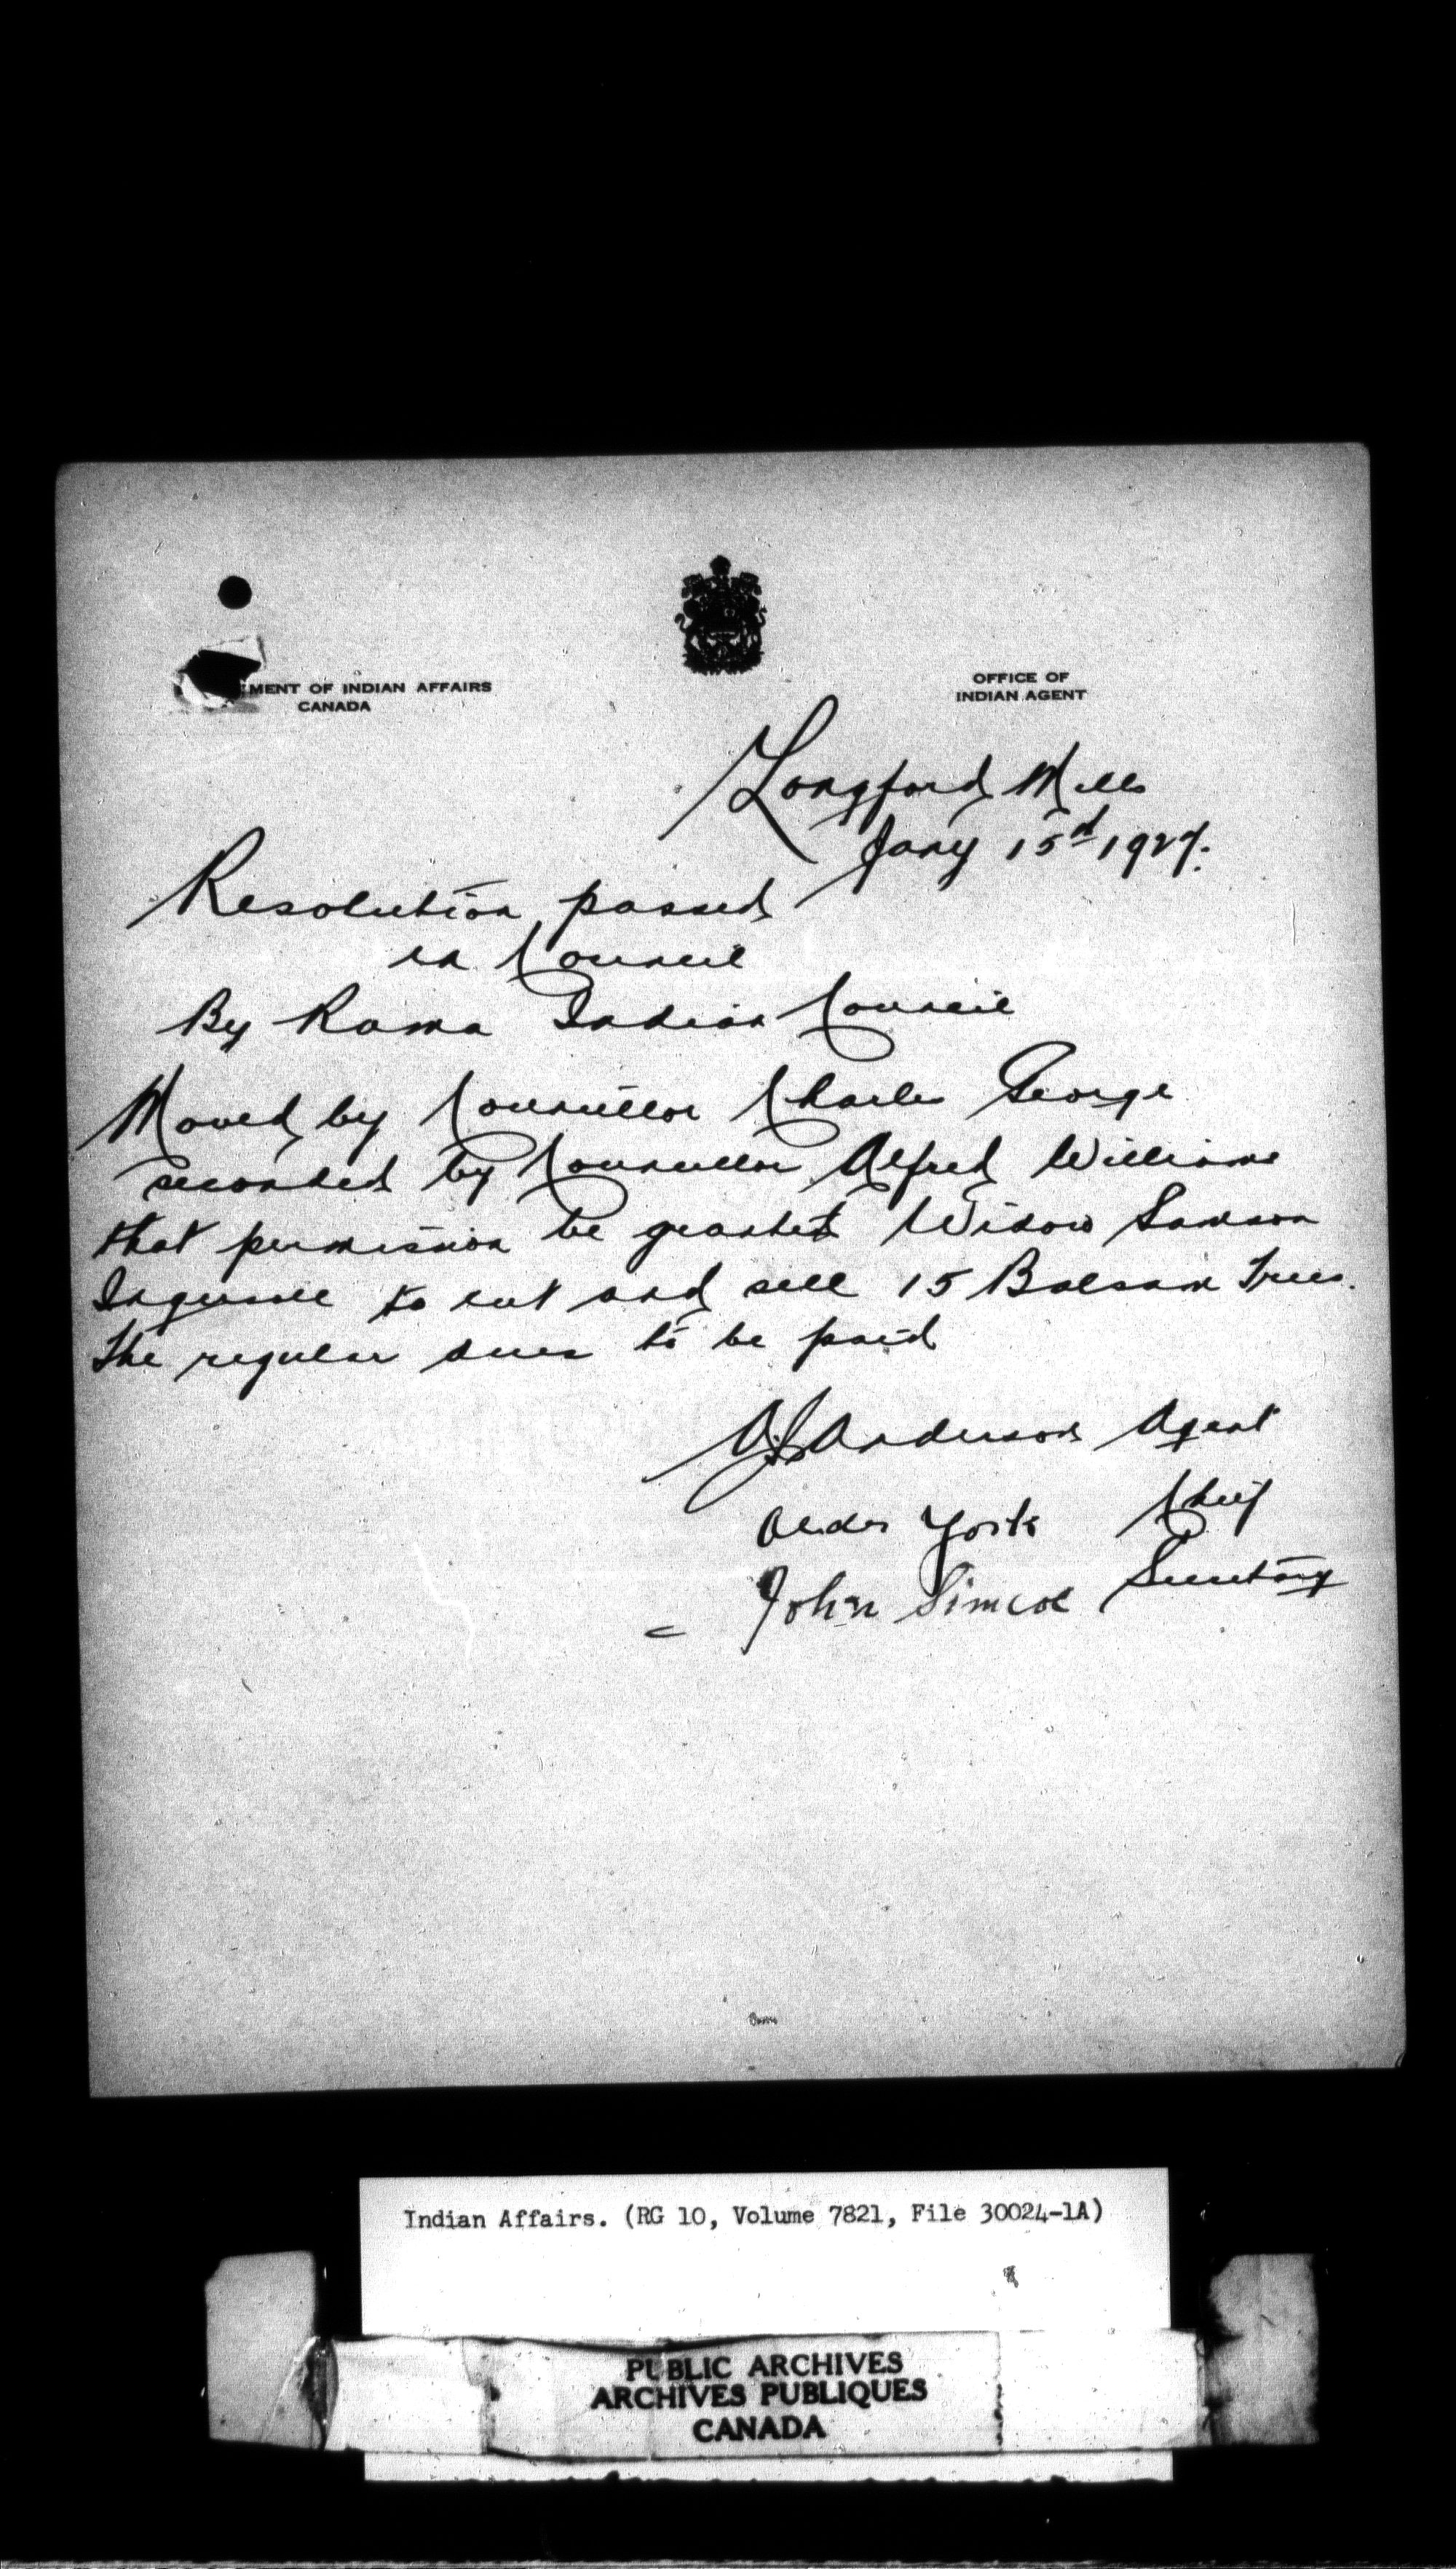 MENT OF INDIAN AFFAIRS
CANADA
OFFICE OF
INDIAN AGENT
Longford Mills
Jany 15d 1927.
Resolution passed
in Council
By Rama Indian Council
Moved by Councillor Charles George
seconded by Councillor Alfred Williams
that permission be granted Widow Samson
Ingersoll to cut and sell 15 Balsam Trees.
The regular dues to be paid
Anderson Agent
York Chief
John Simcoe Secretary
Indian Affairs. (RG 10, Volume 7821, File 30024-1A)
PUBLIC ARCHIVES
ARCHIVES PUBLIQUES
CANADA